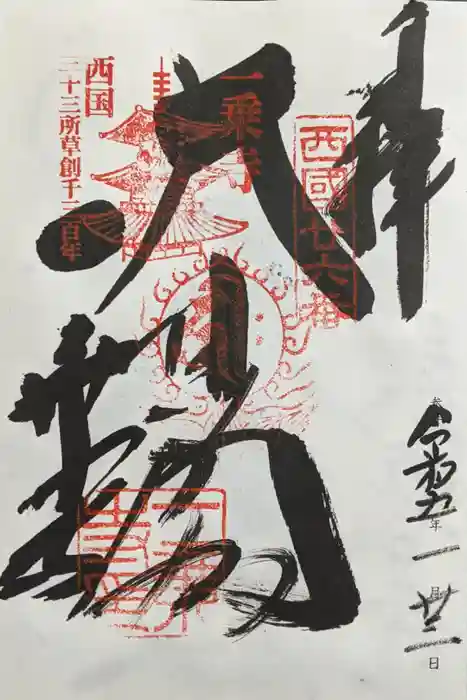 奉拝
西國廿六番
大悲閣
一乗寺
西国
三十三所草創千三百年
令和五年一月廿二日